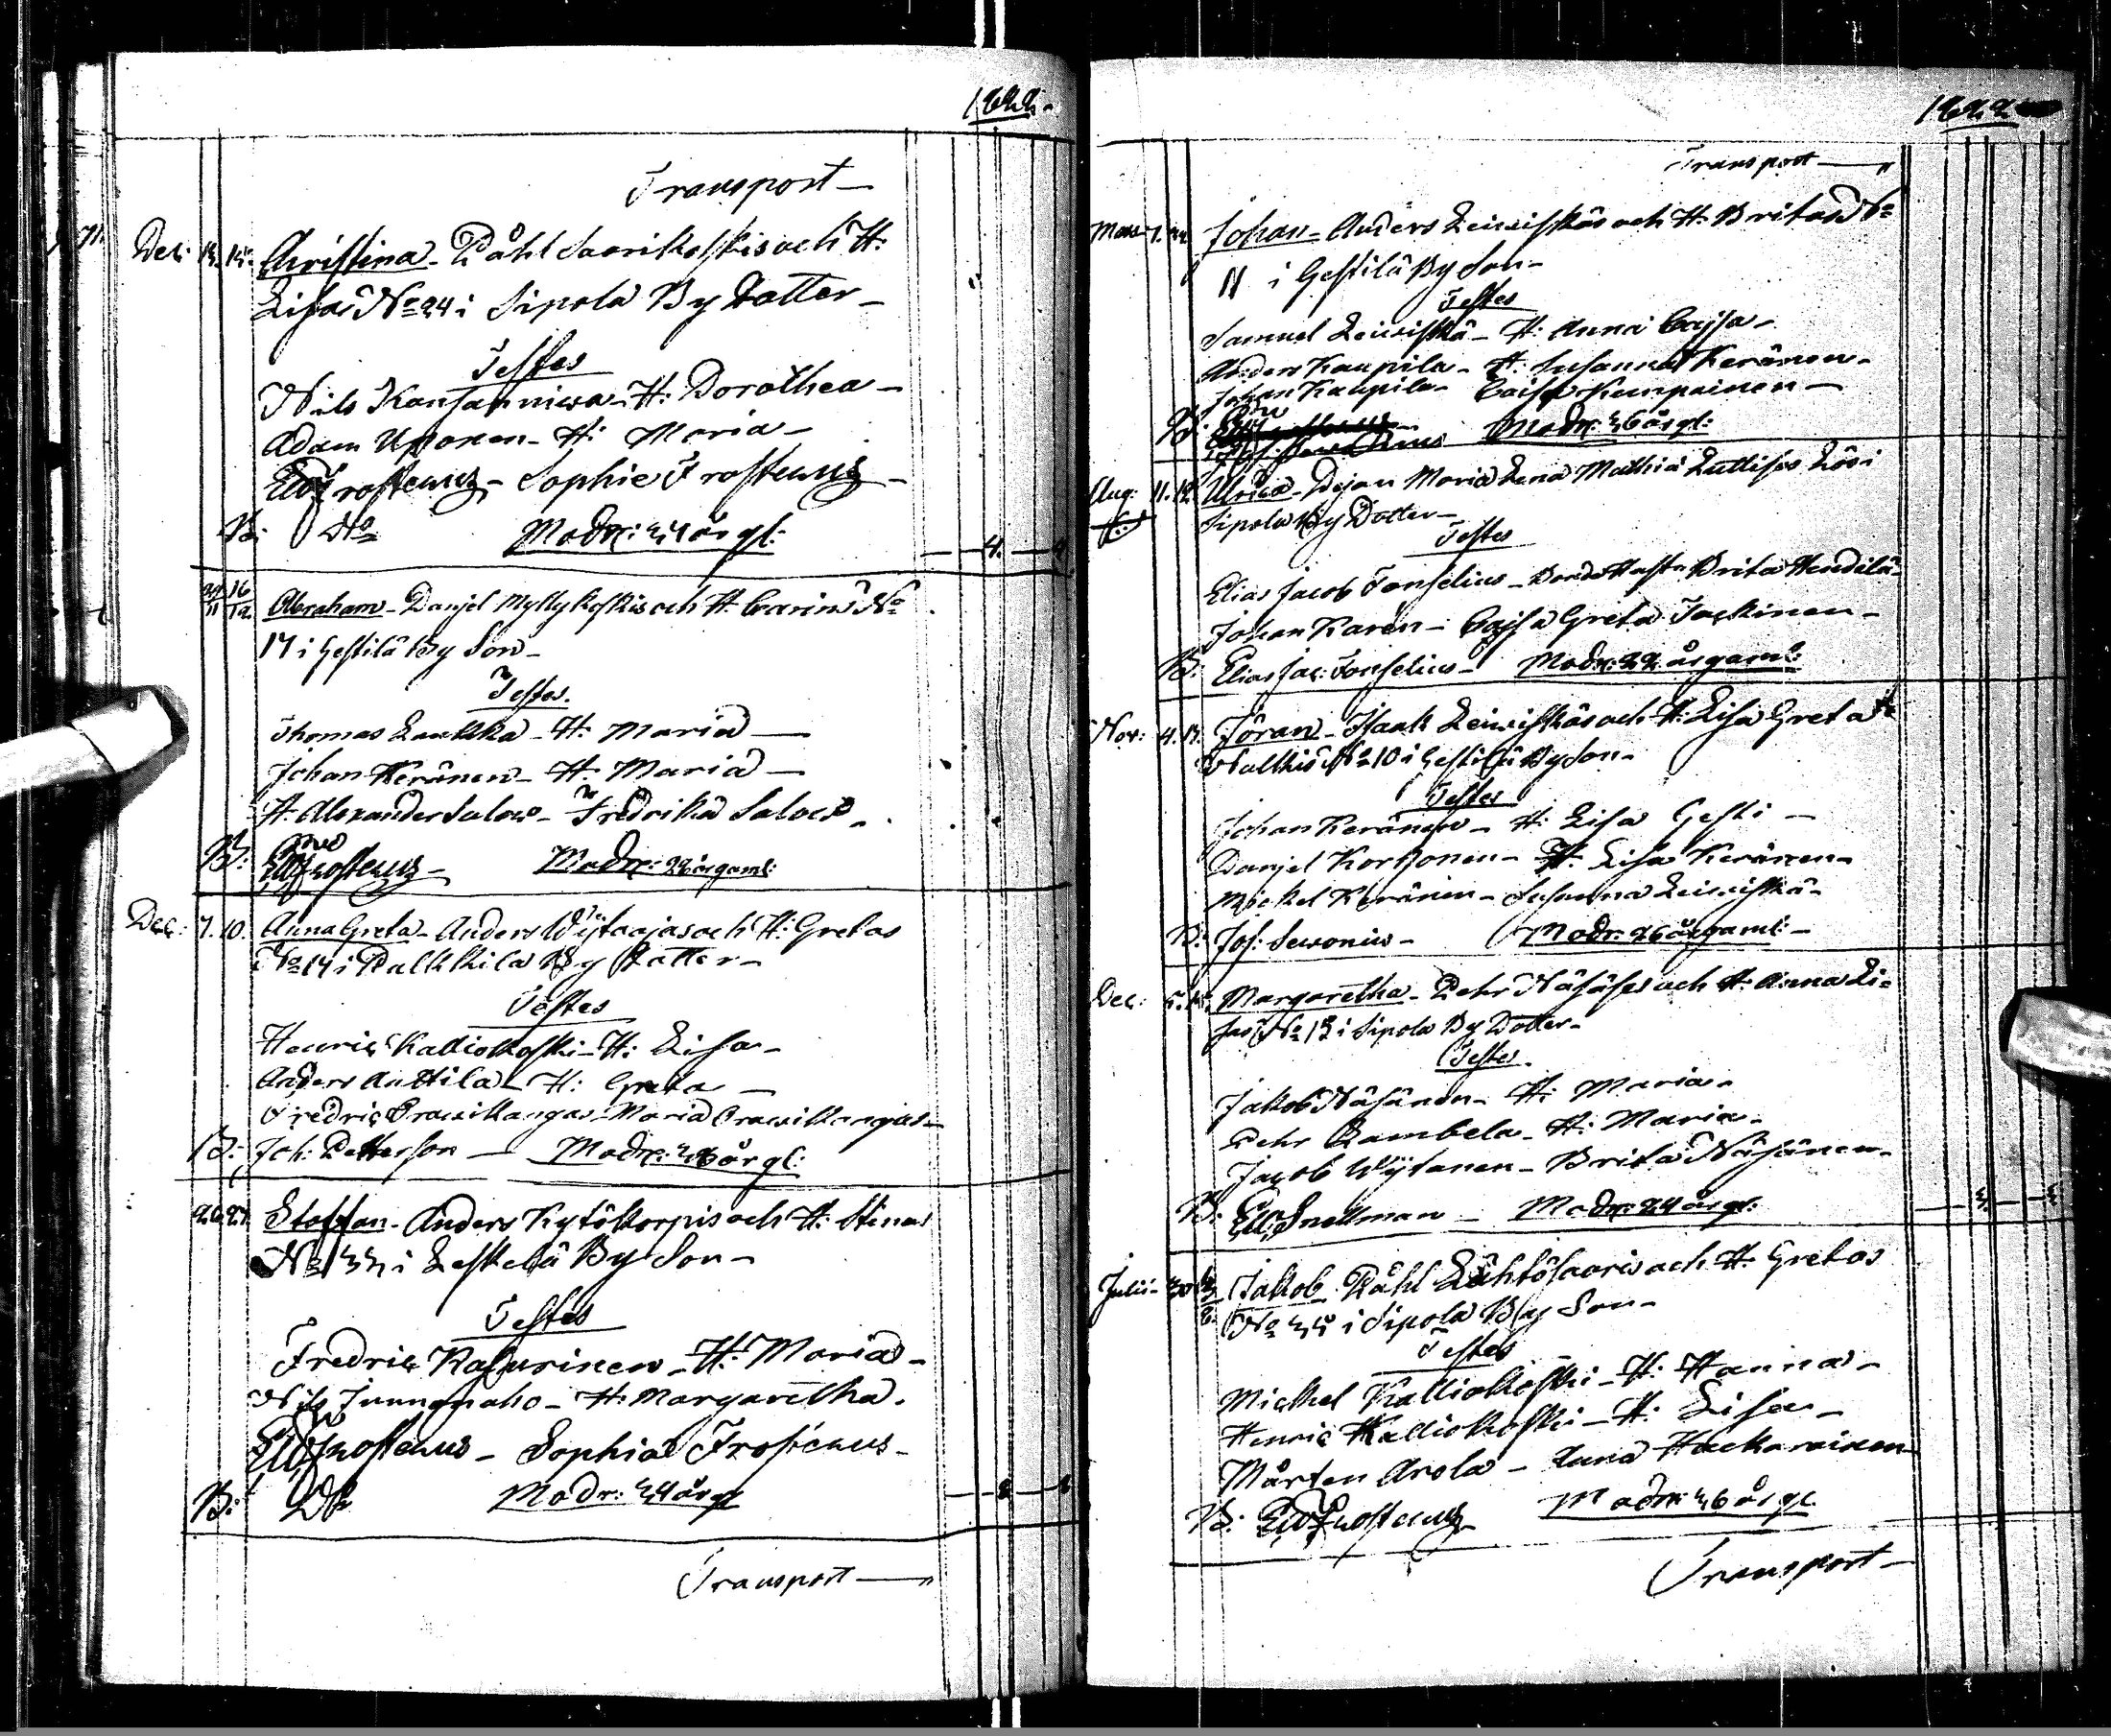 1822.
Transport
Dec: 13. 15. Christina - Påhl Saarikoskis och H:
Lisas No 24 i Sipola By Dotter -
Testes
Nils Kansanniwa - H: Dorothea -
Adam Uponen - H: Maria -
Frosterus - Sophie Frosterus -
B: Do Modr: 34 år gl: 4. 4
29/11 16/12 Abraham - Danjel Myllykoskis och H. Carins No
17 i Gestilä By Son -
Testes.
Thomas Laukka - H: Maria -
Johan Keränen - H: Maria -
H. Alexander Salow - Fredrika Salow -
B: Frosterus - Modr: 22 år gaml:
Dec: 7. 10. Anna Greta - Anders Wytaajas och H: Gretas
No 14 i Pulkkila By Dotter -
Testes
Henric Kalliokoski - H: Lisa -
Anders Anttila - H: Greta -
Fredric Orawikangas - Maria Orawikangas -
B: Joh: Petterson - Modr: 38 år gl:
26. 27. Staffan - Anders Kytökorpis och H: Stinas
No 33 i Leskelä By Son -
Testes
Fredric Kasurinen - H: Maria -
Nils Junnonaho - H: Margaretha.
Frosterus - Sophia Frosterus -
B: Do Modr: 34 år gl
Transport
1822
Transport
Mars 7. Johan - Anders Leiwiskäs och H: Britas No
11 i Gestilä By Son -
Testes
Samuel Leiwiskä - H: Anna Cajsa -
Anders Kaupila - H: Susanna Keränen -
Johan Kaupila - Caisa Kumpainen -
B: Modr: 36 år gl:
Aug: 11. 12. Ulrica - Pigan Maria Lena Mathiä Lösi
Sipola By Dotter -
Testes
Elias Jacob Forselius - Brita Hendilä -
Johan Karén - Cajsa Greta Jackinen -
B: Elias Jac: Forselius - Modr: 22 år gaml:
Nov: 4. Jöran - Isaak Leiwiskäs och H: Lisa Greta
No 10 i Gestilä By Son -
Testes
Johan Keränen - H: Lisa Gesti -
Danjel Korhonen - H. Lisa Keränen -
Mickel Keränen - Susanna Leiwiskä -
B: Joh: Sewonius - Modr: 26 år gaml: -
Dec: Margaretha - Pehr Näsäses och H: Anna Li-
sas No 13 i Sipola By Dotter -
Testes.
Jakob Näsänen - H: Maria -
Pehr Rambela - H: Maria -
Jacob Wytanen - Brita Näsänen -
B: Snellman - Modr: 24 år gl:
Julii - 30 Jakob Påhl Lähtösaaris och H: Gretas
No 35 i Sipola By Son -
Testes
Mickel Kalliokoski - H: Hanna -
Henric Kalliokoski - H: Lisa -
Mårten Arola - Anna Huckarainen
B: Frosterus Modr: 36 år gl.
Transport